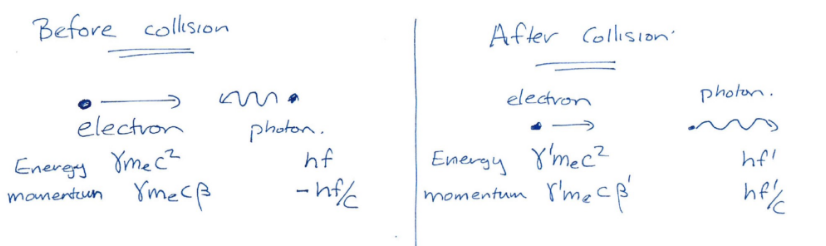 Before collision
electron photon.
Energy γmec² hf
momentum γmecβ -hf/c
After Collision.
electron photon.
Energy γ'mec² hf'
momentum γ'mecβ' hf'/c